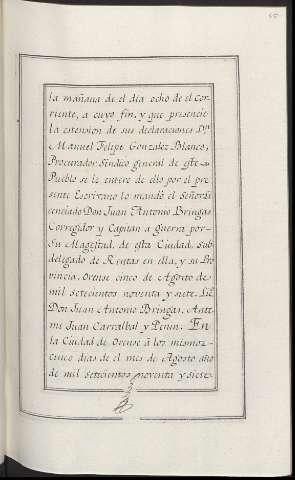 la mañana de el dia ocho de el cor-
riente, a cuyo fin, y que presencie
la estension de sus declaraciones Dn.
Manuel Felipe Gonzalez Blanco,
Procurador Sindico general de este
Pueblo se le entere de ello por el pre
sente Escrivano lo mandó el Señor Li
cenciado Don Juan Antonio Bringas
Corregidor y Capitan a Guerra por
Su Magestad, de esta Ciudad, Sub
delegado de Rentas en ella, y su Pro
vincia. Orense cinco de Agosto de
mil setecientos noventa y siete. Lid.
Don Juan Antonio Bringas. Ante
mi Juan Carralbal y Penin. En
la Ciudad de Orense à los mismos
cinco dias de el mes de Agosto año
de mil setecientos noventa y siete